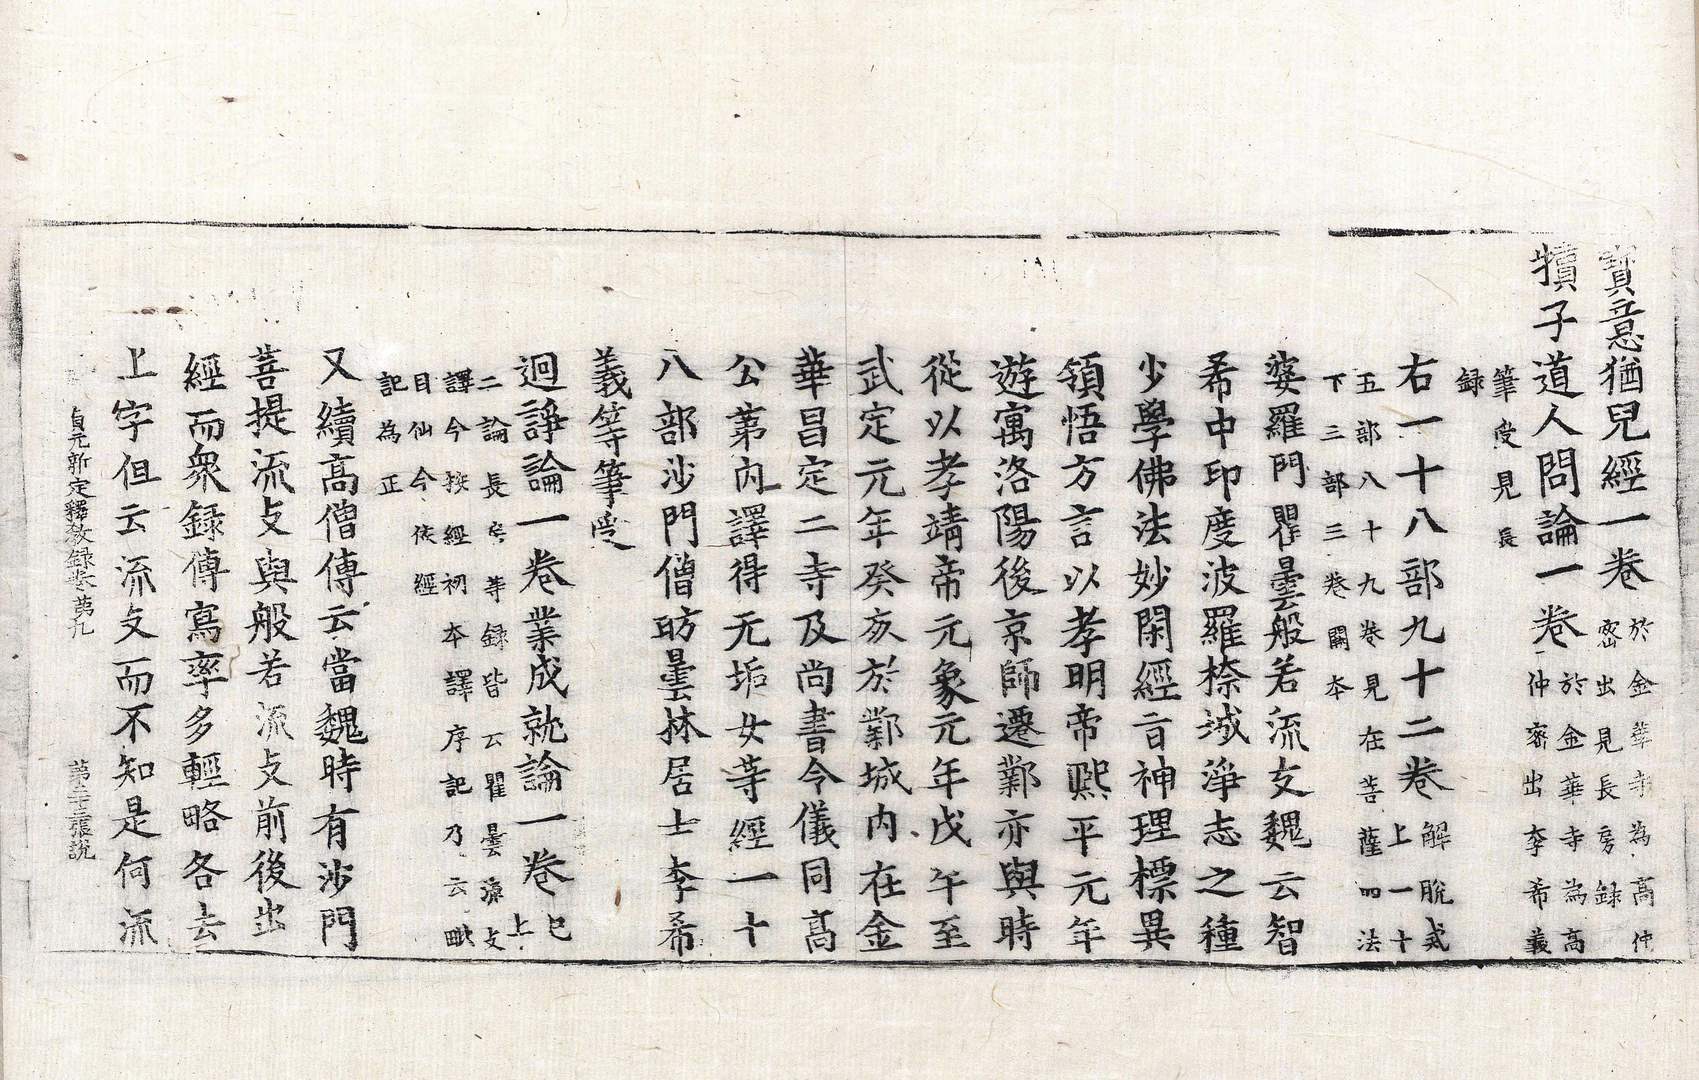 寳意猶兒經一卷於金華寺為高仲
宻出見長房録
犢子道人問論一卷於金華寺為高
仲密出李希義
筆受見長
録
右一十八部九十二卷解脫戒
上一十
五部八十九卷見在菩薩四法
下三部三卷闕本
婆羅門瞿曇般若流支魏云智
希中印度波羅㮈城淨志之種
少學佛法妙閑經音神理標異
領悟方言以孝明帝熈平元年
遊寓洛陽後京師遷鄴亦與時
從以孝靖帝元象元年戊午至
武定元年癸亥於鄴城内在金
華昌定二寺及尚書令儀同高
公第内譯得无垢女等經一十
八部沙門僧昉曇林居士李希
義等筆受
迴諍論一卷業成就論一卷已
上
二論長房等録皆云瞿曇流支
譯今撿經初本譯序記乃云毗
目仙今依經
記為正
又續高僧傳云當魏時有沙門
菩提流支與般若流支前後出
經而衆録傳寫率多輕略各去
上字但云流支而不知是何流
貞元新定釋教録卷第九 第二十三張說